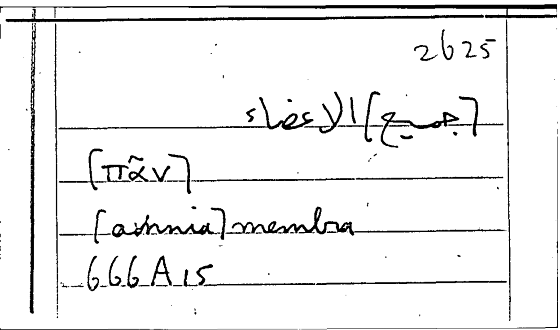 2625
[جميع] الاعضاء
[πᾶν]
[omnia] membra
666A15